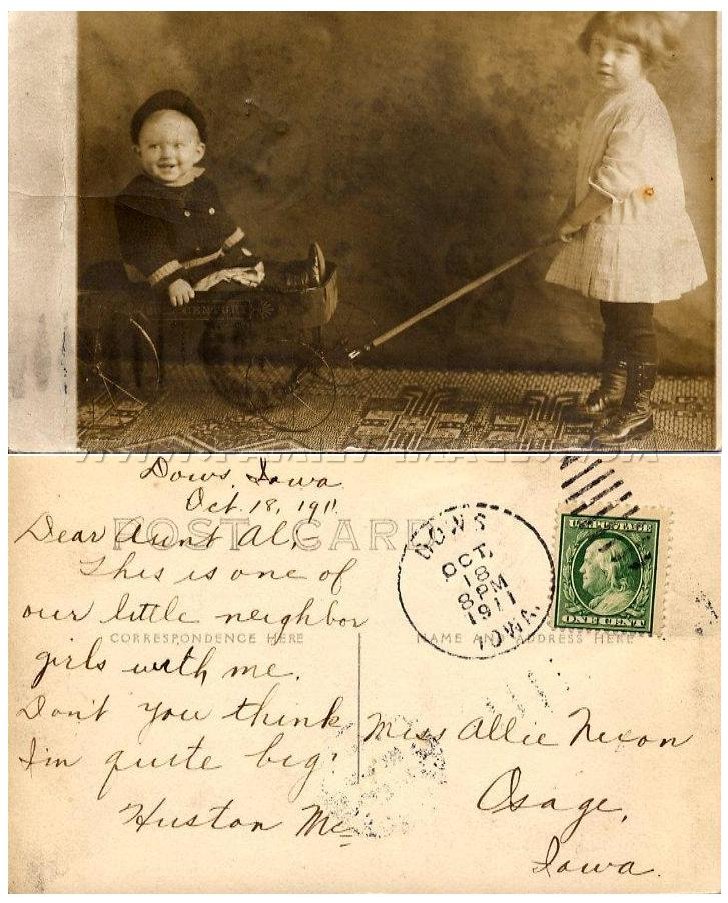 20TH CENTURY
WWW.FAMILY-IMAGES.COM
Dows, Iowa
Oct. 18, 1911
POST CARD
Dear Aunt Al,
This is one of
our little neighbor
CORRESPONDENCE HERE
girls with me.
Don't you think
I'm quite big?
Huston Mc
DOWS
OCT.
18
8 PM
1911
IOWA.
U.S. POSTAGE
ONE CENT
NAME AND ADDRESS HERE
Miss Allie Nixon
Osage,
Iowa.